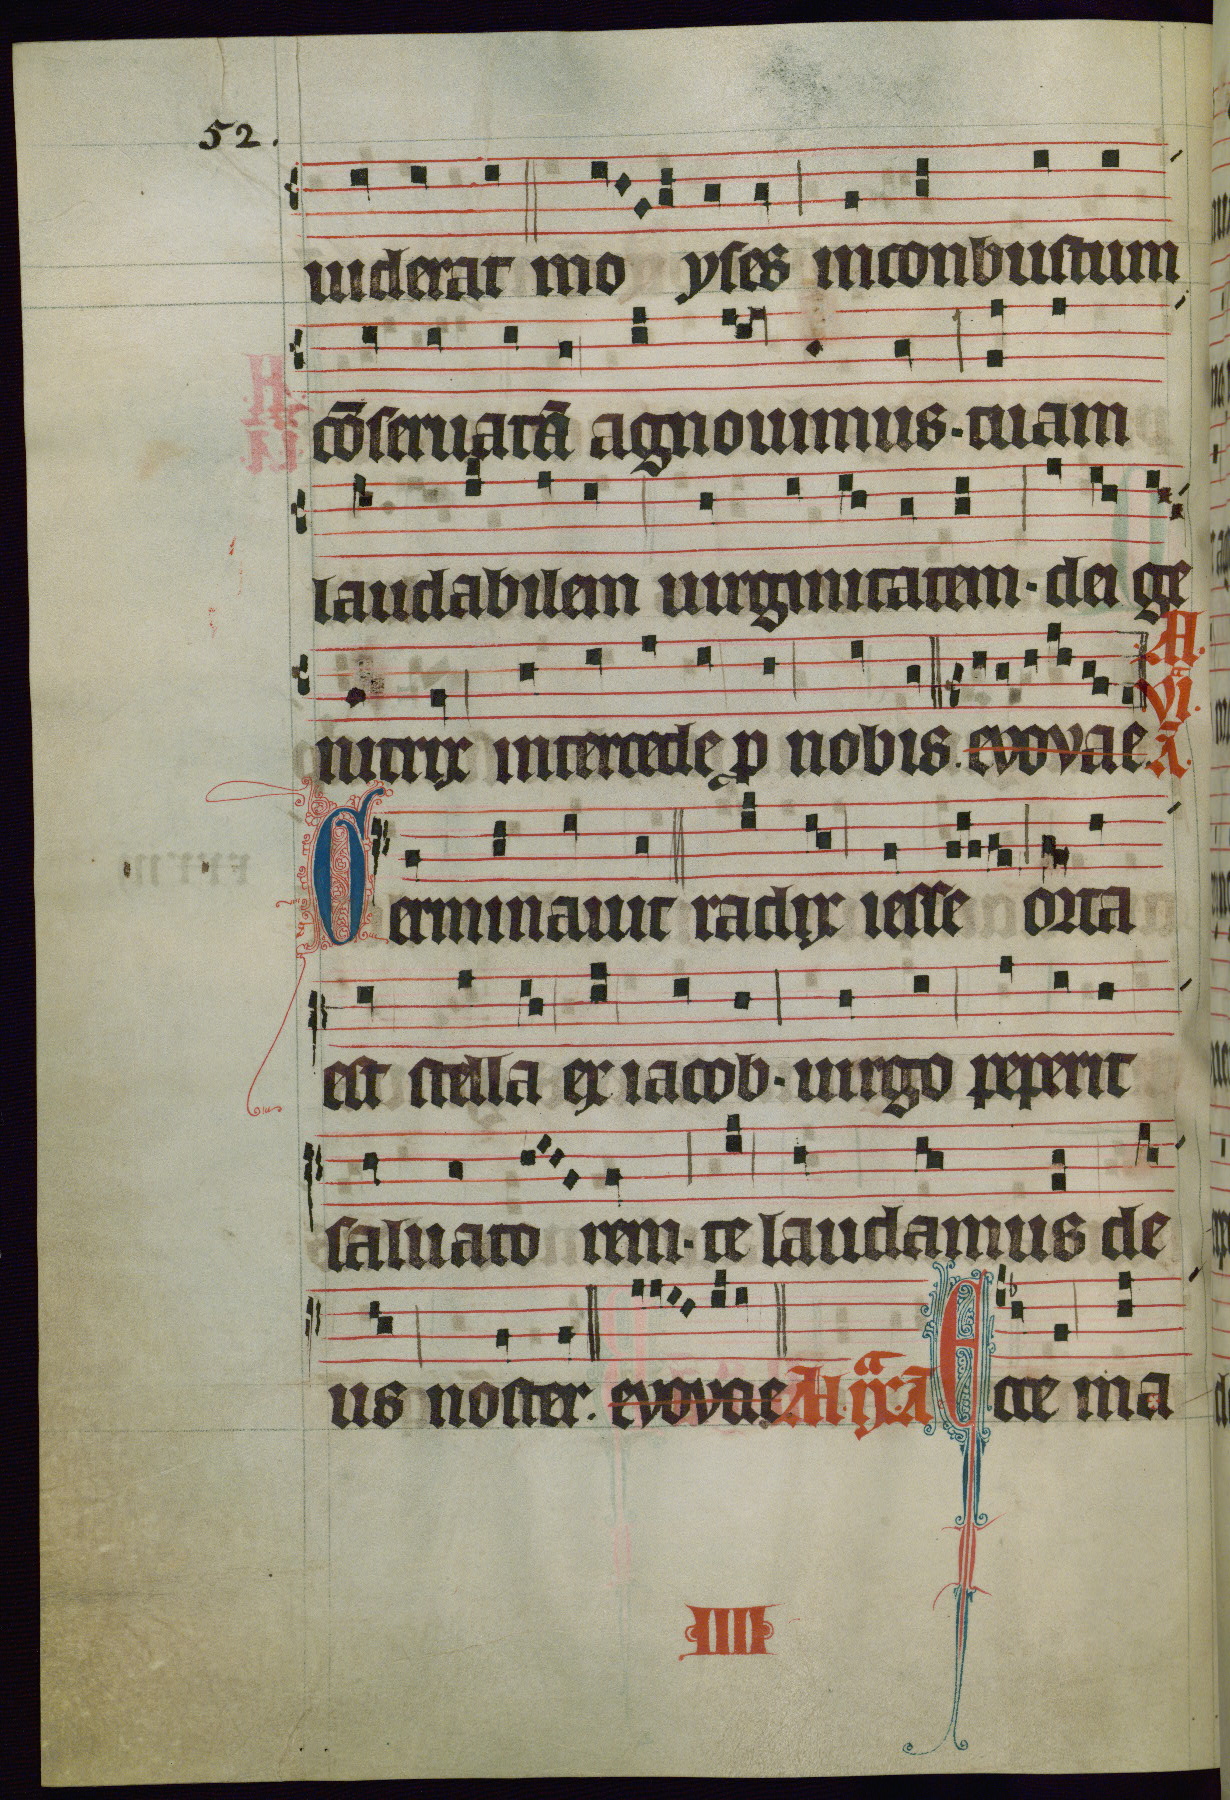 52.
uiderat mo yses inconbustum
cōseruatā agnouimus. tuam
laudabilem uirginitatem. dei ge
nitrix intercede p nobis. evovae. A.
VI.
Ā.
Germinauit radix iesse orta
est stella ex iacob. uirgo peperit
saluato rem. te laudamus de
us noster. evovae. A. A Ecce ma
IIII